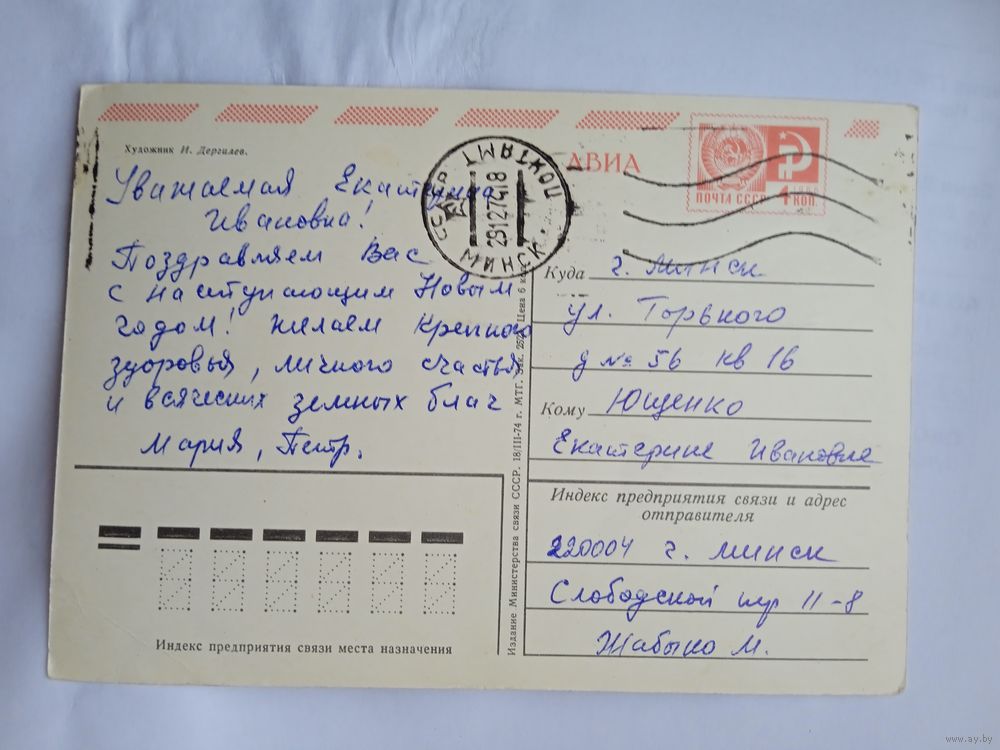 Художник И. Дергилев.
АВИА
ПОЧТА СССР
1966
4 КОП.
СССР
МИНСК ПОЧТАМТ
29127418
Уважаемая Екатерина
Ивановна!
Поздравляем Вас
с наступающим Новым
годом! Желаем крепкого
здоровья, личного счастья
и всяческих земных благ
Мария, Петр.
Куда г. Минск
ул. Горького
д № 56 кв 16
Кому Ющенко
Екатерине Ивановне
Индекс предприятия связи и адрес
отправителя
220004 г. Минск
Слободской пр 11-8
Жабыко М.
Индекс предприятия связи места назначения
Издание Министерства связи СССР. 18/III-74 г. МТГ. Зак. Цена 6 к
www.ay.by